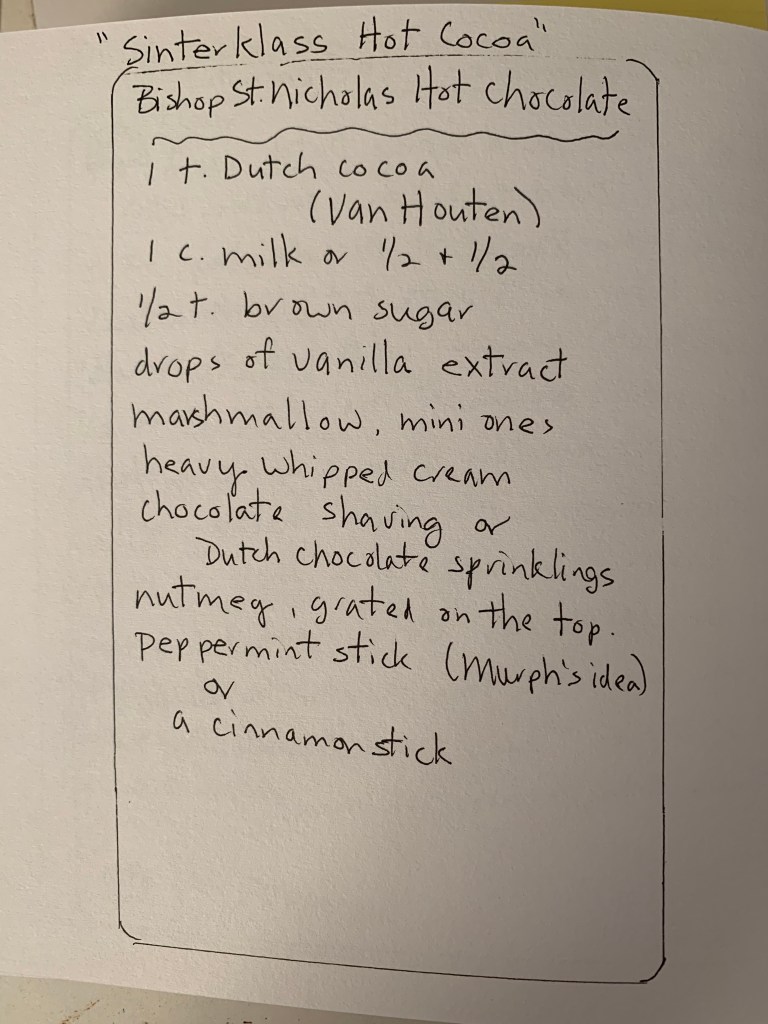 "Sinterklass Hot Cocoa"
Bishop St. Nicholas Hot Chocolate
1 t. Dutch cocoa
(Van Houten)
1 c. milk or 1/2 + 1/2
1/2 t. brown sugar
drops of vanilla extract
marshmallow, mini ones
heavy whipped cream
chocolate shaving or
Dutch chocolate sprinklings
nutmeg, grated on the top.
peppermint stick (Murph's idea)
or
a cinnamon stick